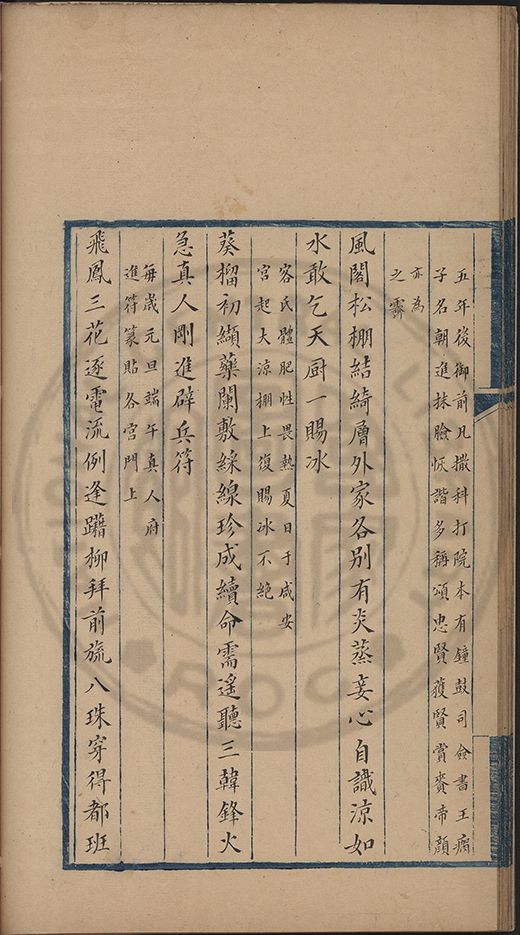 五年後御前凡撒科打院本有鐘鼓司僉書王瘸
子名朝進抹臉恢諧多稱頌忠賢獲賢賞賚帝顏
亦為
之霽
風閣松棚結綺層外家各別有炎蒸妾心自識涼如
水敢乞天厨一賜冰
客氏體肥性畏熱夏日于咸安
宮起大涼棚上復賜冰不絕
葵榴初纈藥闌敷綵線珍成續命需遙聽三韓鋒火
急真人剛進辟兵符
每歲元旦端午真人府
進符篆貼各宮門上
飛鳳三花逐電流例逢躤柳拜前旒八珠穿得都班